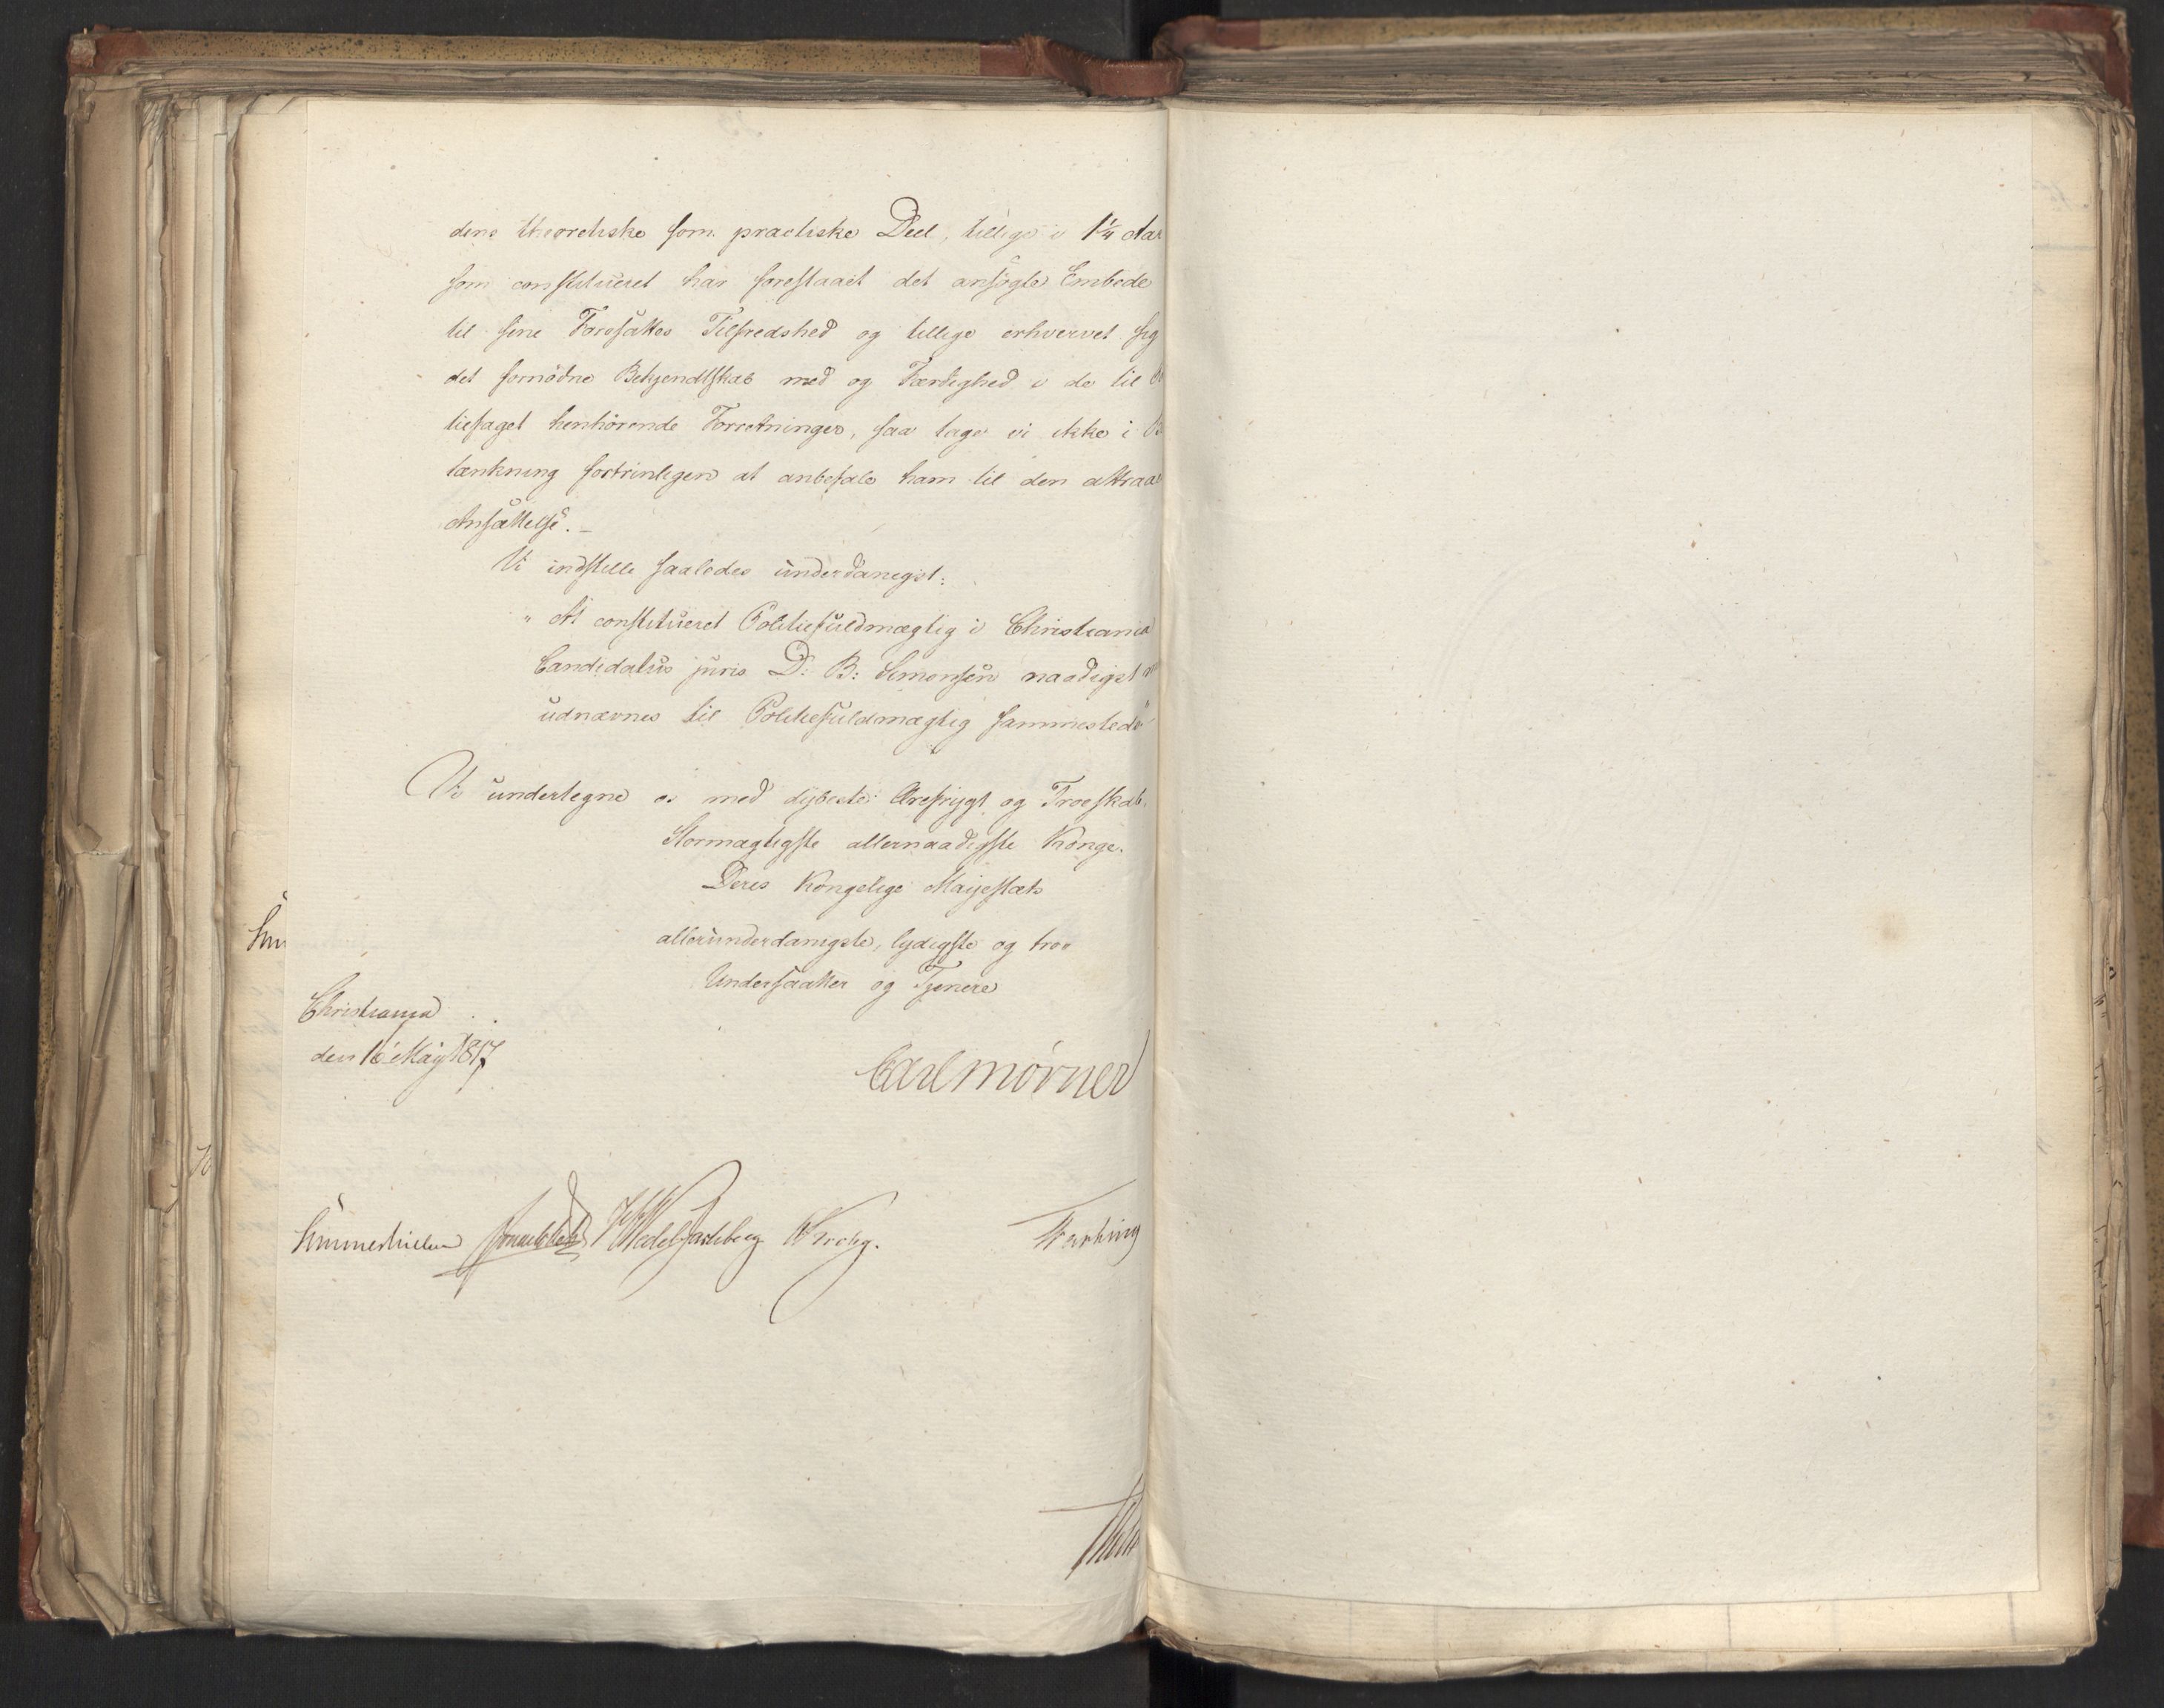 dens theoretiske som practiske Deel, tillige i 1¼ Aar
som constitueret har forestaaet det ansøgte Embede
til sine Foresattes Tilfredshed og tillige erhvervet sig
det fornødne Bekjendtskab med og Færdighed i de til
tiefaget henhörende Forretninger, saa tage vi ikke i
tænkning fortrinligen at anbefale ham til den attraa
Ansættelse.—
Vi indstille saaledes underdanigst:
"At constitueret Politiefuldmægtig i Christiania
Candidatus juris D: B: Simonsen naadigst
udnævnes til Politiefuldmægtig sammesteds"
Vi undertegne os med dybeste Ærefrygt og Troeskab.
Stormægtigste allernaadigste Konge.
Deres Kongelige Majestæts
allerunderdanigste, lydigste og troe
Undersaatter og Tjenere
Christiania
den 16 May 1817
Carl Mörner
Sommerhielm Wedel Jarlsberg Krohg.